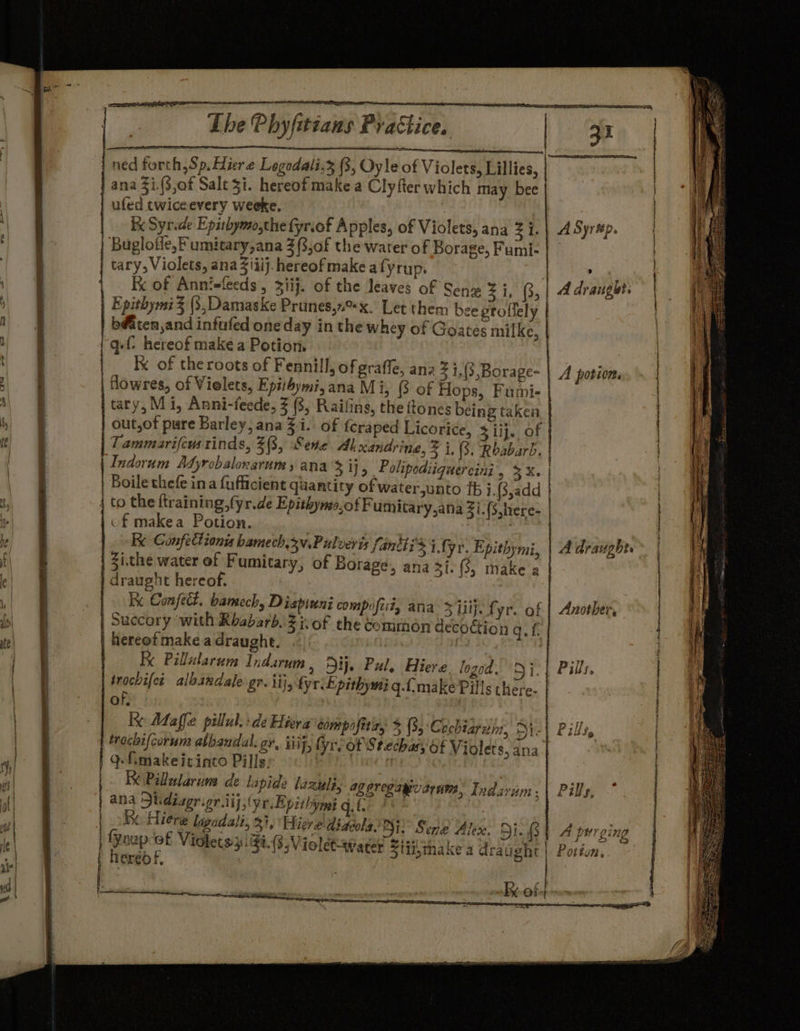 The Phyſitians Practice.
31
ned forth, Sp. Hieræ Logodali. ʒ ß, Oyle of Violets, Lillies,
ana ℥i.ß, of Salt ʒi. hereof make a Clyſter which may bee
uſed twice every weeke.
℞ Syr. de Epithymo, the ſyr. of Apples, of Violets, ana ℥ i.
A Syrup.
Bugloſſe, Fumitary, ana ℥ß, of the water of Borage, Fumi-
tary, Violets, ana ℥iiij. hereof make a ſyrup.
℞ of Anniſeeds, ʒiij. of the leaves of Senæ ℥ i, ß,
A draught.
Epithymi ℥ ß, Damaske Prunes, nº x. Let them bee groſſely
beaten, and infuſed one day in the whey of Goates milke,
q.ſ. hereof make a Potion.
℞ of the roots of Fennill, of graſſe, ana ℥ i.ß, Borage-
A potion.
flowres, of Violets, Epithymi, ana M i, ß of Hops, Fumi-
tary, M i, Anni-ſeede, ℥ ß, Raiſins, the ſtones being taken
out, of pure Barley, ana ℥ i. of ſcraped Licorice, ʒ iij. of
Tammariſcus rinds, ℥ß, Sene Alexandrinæ, ℥ i. ß. Rhabarb.
Indorum Myrobalonarum, ana ʒ ij, Polipodii quercini, ʒ x.
Boile theſe in a ſufficient quantity of water, unto ℔ i.ß, add
to the ſtraining, ſyr. de Epithymo, of Fumitary, ana ℥i.ß, here-
of make a Potion.
℞ Confectionis hamech. ʒv. Pulveris ſancti ʒ i. ſyr. Epithymi,
A draught.
℥i. the water of Fumitary, of Borage, ana ℥i. ß, make a
draught hereof.
℞ Confect. hamech, Diapruni compoſiti, ana ʒ iiij. ſyr. of
Another.
Succory with Rhabarb. ℥ i. of the common decoction q. ſ.
hereof make a draught.
℞ Pillularum Indarum, ℈ij. Pul. Hieræ logod. ℈ i.
Pills.
trochiſci alhandale gr. iij, ſyr. Epithymi q.ſ. make Pills there-
of.
℞ Maſſæ pillul. de Hiera compoſita, ʒ ß, Cochiarum, ℈i.
Pills,
trochiſcorum alhandal. gr. iiij, ſyr. of Stechas, of Violets, ana
q.ſ. make it into Pills.
℞ Pillularum de lapide lazuli, aggregativarum, Indarum,
Pills,
ana ℈i. diagr. gr. iij, ſyr. Epithymi q.ſ.
℞ Hieræ logadali, ʒi, Hieræ diacolo. ℈i. Senæ Alex. ℈i. ß
A purging
ſyrup of Violets, ℥i.ß, Violet-water ℥iii, make a draught
Potion.
hereof.
℞ of